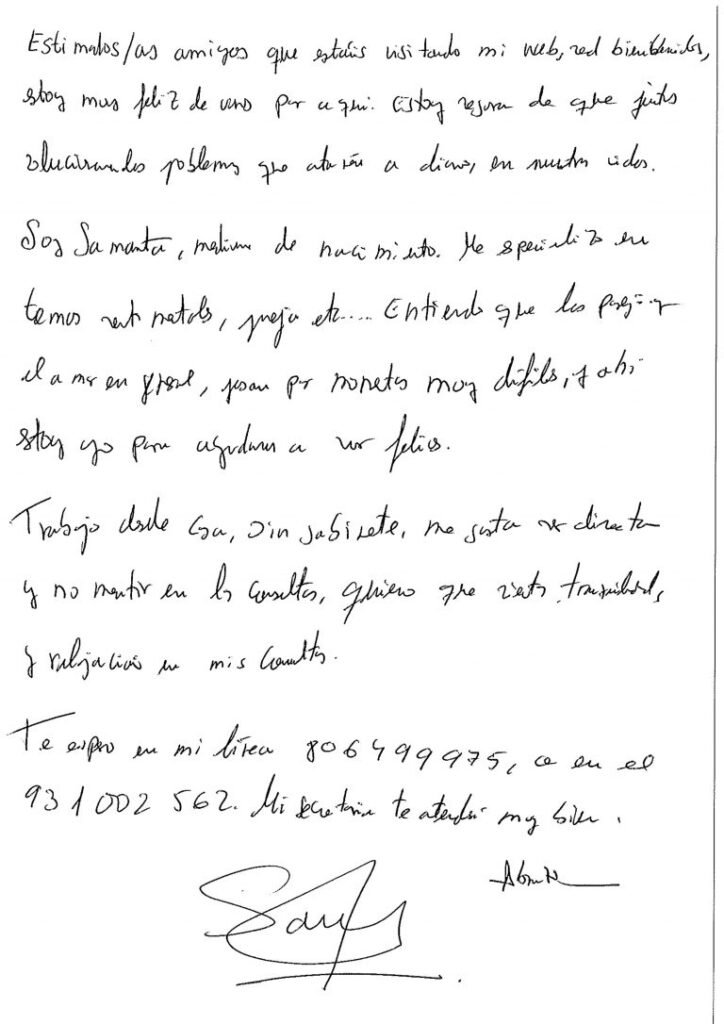 Estimados/as amigos que estáis visitando mi web, sed bienvenidos,
estoy muy feliz de veros por aquí. Estoy segura de que juntos
solucionaremos problemas que atañen a diario, en nuestras vidas.
Soy Samanta, medium de nacimiento. Me especializo en
temas sentimentales, pareja etc.... Entiendo que las parejas y
el amor en general, pasan por momentos muy difíciles, y ahí
estoy yo para ayudaros a ser felices.
Trabajo desde casa, sin gabinete, me gusta ser directa
y no mentir en las consultas, quiero que sientas tranquilidad,
y relajación en mis consultas.
Te espero en mi línea 806499975, o en el
931002562. Mi secretaria te atenderá muy bien.